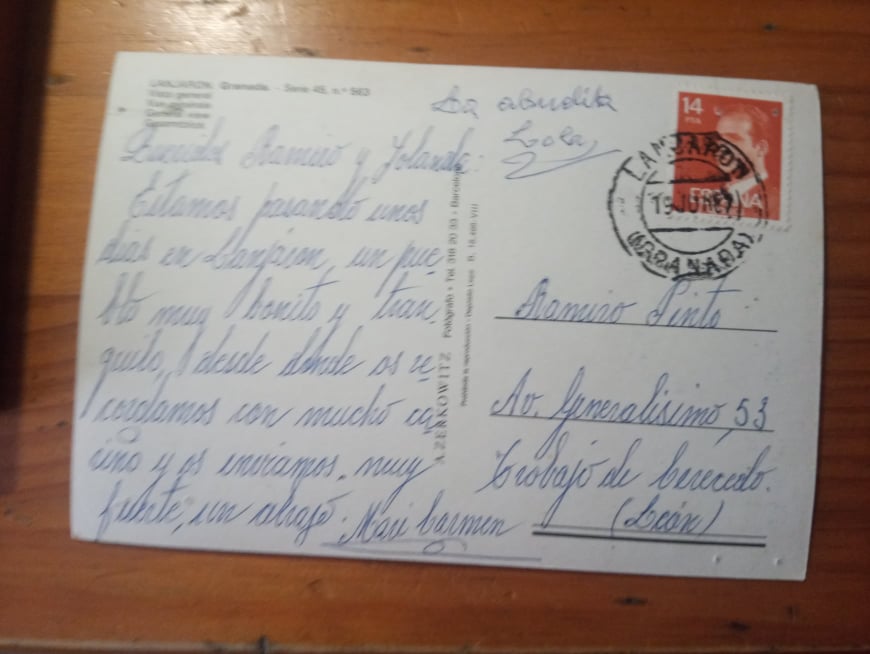 LANJARON. Granada. - Serie 45, n.º 563
Vista general
Vue générale
General view
La abudita
Lola
Queridos Ramiro y Yolanda:
Estamos pasando unos
días en Lanjaron, un pue-
blo muy bonito y tran-
quilo, desde donde os re-
cordamos con mucho ca-
riño y os enviamos, muy
fuerte, un abrazo.
Mari Carmen
A. ZERKOWITZ Fotógrafo • Tel. 318 20 03 • Barcelona
Prohibida la reproducción - Depósito Legal B. 18.486-VIII
14
PTA
ESPAÑA
LANJARON
19 JUN 8
(GRANADA)
Ramiro Pinto
Av. Generalisimo, 53
Trobajo de Cerecedo.
(León)